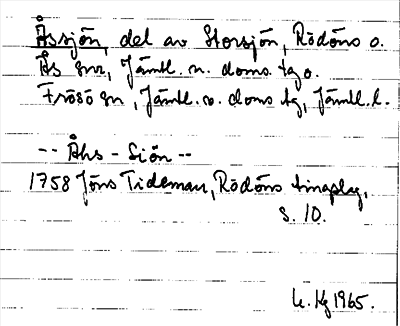 Åssjön, del av Storsjön, Rödöns o.
Ås snr, Jämtl. n. doms. tg o.
Frösö sn, Jämtl. v. doms tg, Jämtl. l.
-- Åhs - Siön --
1758 Jöns Tideman, Rödöns tingslag,
s. 10.
1965.